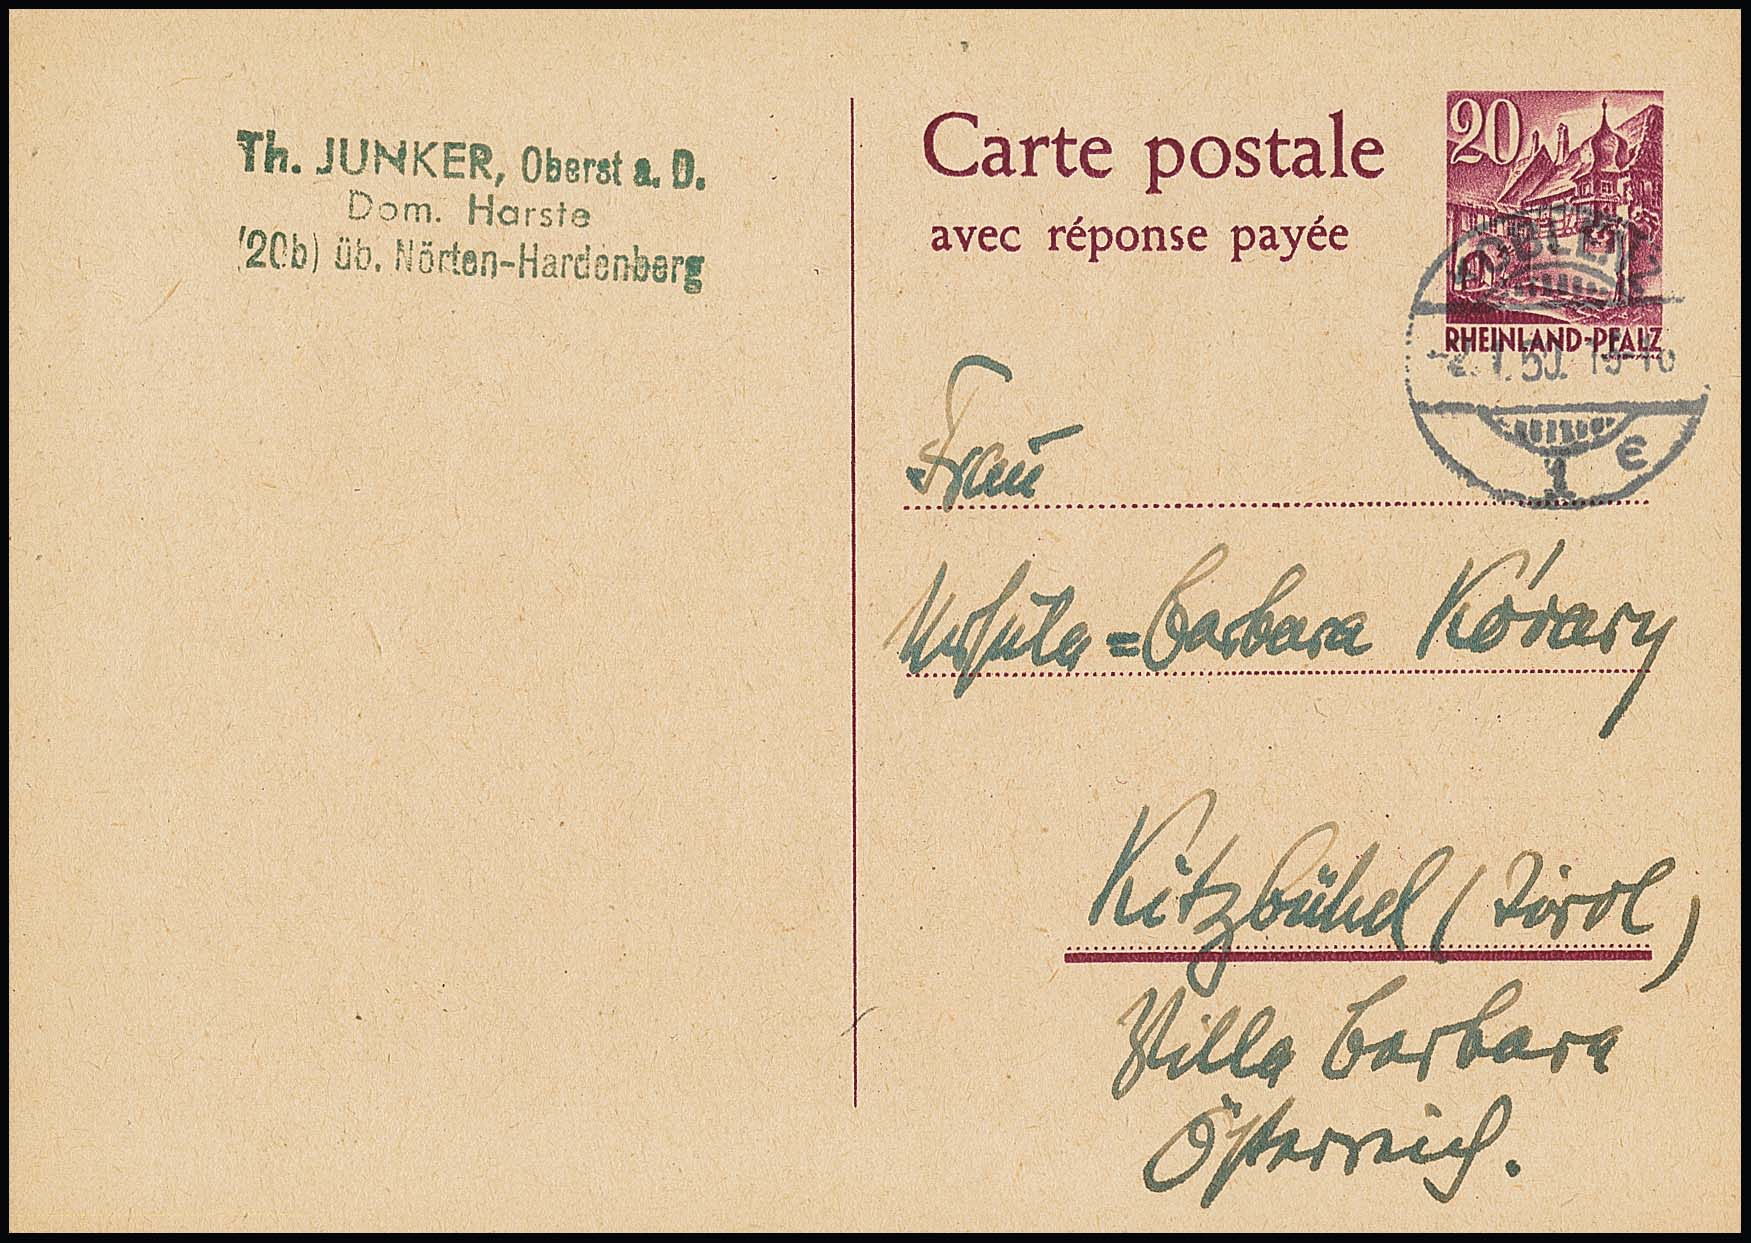 Th. JUNKER, Oberst a. D.
Dom. Harste
(20b) üb. Nörten-Hardenberg
Carte postale
avec réponse payée
20
RHEINLAND-PFALZ
KOBLENZ
-2.1.50. 15-16
1 e
Frau
Ursula=Barbara Kórary
Kitzbühel (Tirol)
Villa Barbara
Österreich.